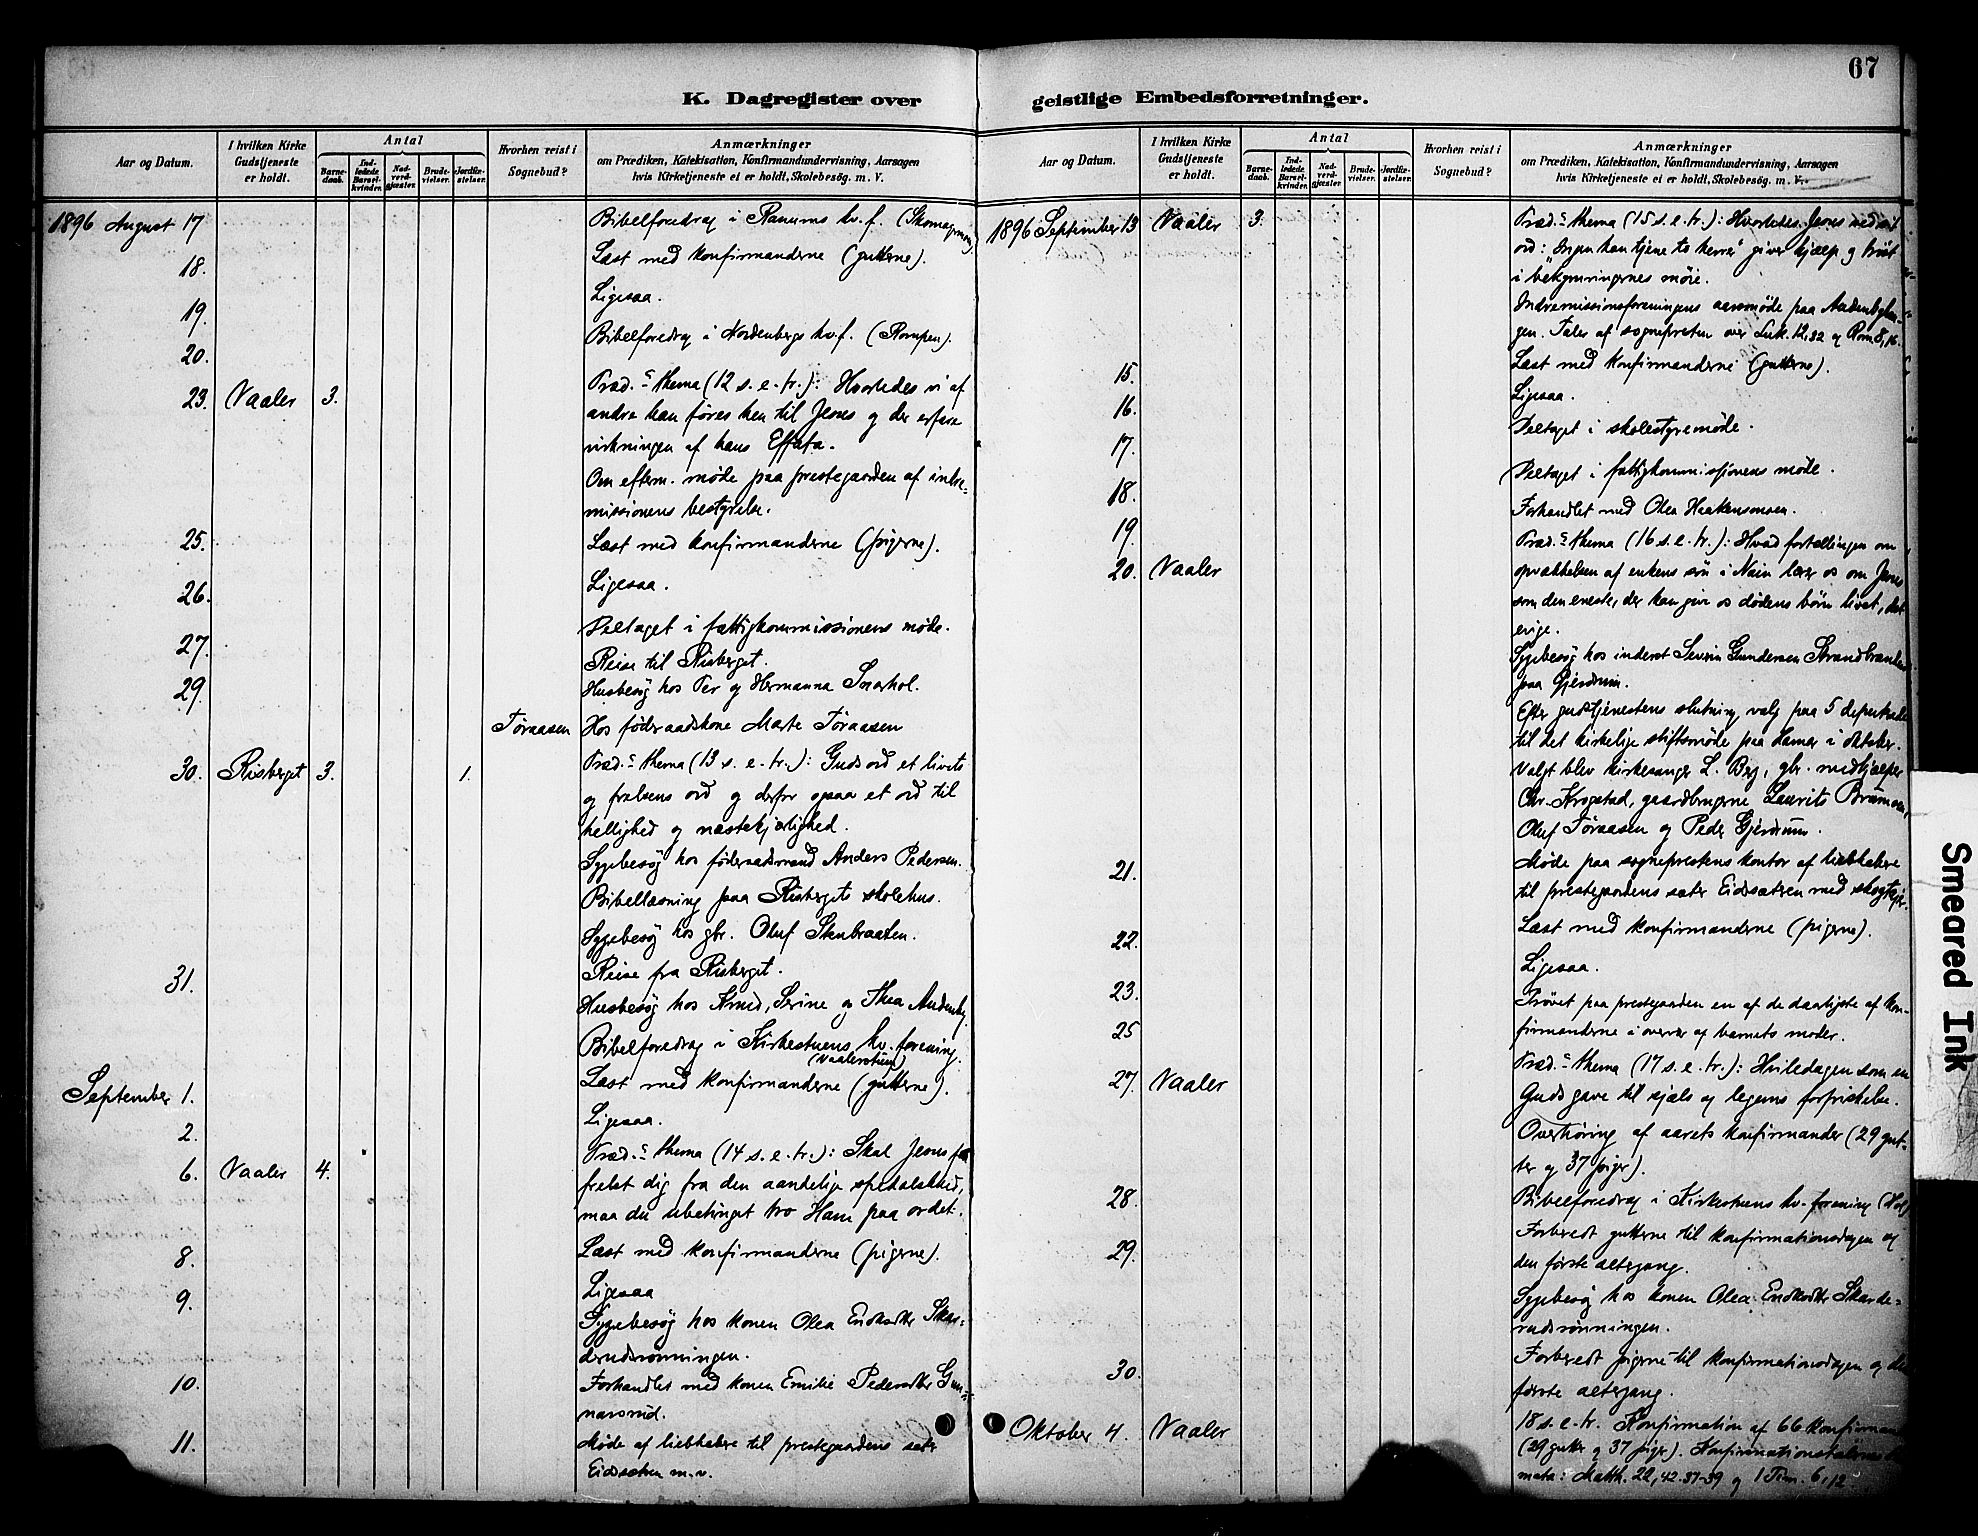 67
K. Dagregister over geistlige Embedsforretninger.
Aar og Datum.
I hvilken Kirke Gudstjeneste er holdt.
Antal
Barnedaab.
Indledede Barselkvinder.
Nadverdgjæster.
Brudevielser.
Jordfæstelser.
Hvorhen reist i Sognebud?
Anmærkninger
om Prædiken, Katekisation, Konfirmandundervisning, Aarsagen
hvis Kirketjeneste ei er holdt, Skolebesøg. m. V.
1896 August 17 Bibelforedrag i Ranums kv.f.
18. Læst med konfirmanderne (gutterne).
19. Ligesaa.
20. Bibelforedrag i Nordenbergs kv.f. (Rompen).
23. Vaaler 3. Præd.s thema (12 s. e. tr.): Hvorledes vi af
andre kan føres hen til Jesus og der erfare
virkningen af hans Effata.
Om efterm. møde paa prestegaarden af indre=
missionens bestyrelse.
25. Læst med konfirmanderne (pigerne).
26. Ligesaa.
27. Deltaget i fattigkommissionens møde.
29. Reise til Risberget.
Husbesøg hos Per og Hermanna Snarhol.
Tøraasen Hos føderaadskone Marte Tøraasen
30. Risberget 3. 1. Præd.s thema (13 s. e. tr.): Guds ord et livets
og frelsens ord og derfor ogsaa et ord til
hellighed og næstekjærlighed.
Sygebesøg hos føderaadsmand Anders Pedersen.
Bibellæsning paa Risbergets skolehus.
Sygebesøg hos gbr. Oluf Stenbraaten.
31. Reise fra Risberget.
Husbesøg hos Arned, Serine og Thea Audenby.
Bibelforedrag i Kirkestuens kv. forening.
(Vaalerstuen)
September 1. Læst med konfirmanderne (gutterne).
2. Ligesaa.
6. Vaaler 4. Præd.s thema (14 s. e. tr.): Skal Jesus faa
frelst dig fra den aandelige spedalskhed,
maa du ubetinget tro Ham paa ordet.
8. Læst med konfirmanderne (pigerne).
9. Ligesaa
Sygebesøg hos konen Olea Endresdtr Skar=
derudsrønningen.
10. Forhandlet med konen Emilie Pedersdtr Gun=
narsrud.
11. Møde af liebhabere til prestegaardens sæter
Eidssætren m.v.
1896 September 13 Vaaler 3. Præd.s thema (15 s. e. tr.): Hvorledes Jesus med sit
ord: "Ingen kan tjene to herrer" giver hjælp og trøst
i bekymringernes møie.
Indremissionsforeningens aarsmøde paa Audenbyhau=
gen. Taler af sognepresten over Luk. 12,32 og Rom. 8,16.
15. Læst med konfirmanderne (gutterne).
16. Ligesaa.
17. Deltaget i skolestyremøde.
18. Deltaget i fattigkommissionens møde.
19. Forhandlet med Olea Haakensonsen.
20. Vaaler Præd.s thema (16 s. e. tr.): Hvad fortællingen om
opvækkelsen af enkens søn i Nain lærer os om Jesus
som den eneste, der kan give os dødens børn livet, det
evige.
Sygebesøg hos inderst Severin Gundersen Strandbraaten
paa Gjerdrum.
Efter gudstjenestens slutning valg paa 5 deputerede
til det kirkelige stiftsmøde paa Hamar i oktober.
Valgt blev kirkesanger L. Berg, gbr. medhjælper
Chr. Krogstad, gaardbrugerne Laurits Bramoen,
Oluf Tøraasen og Peder Gjerdrum.
21. Møde paa sogneprestens kontor af liebhabere
til prestegaardens sæter Eidssætren med
22. Læst med konfirmanderne (pigerne).
23. Ligesaa.
25 Prøvet paa prestegaarden en af de daarligste af kon=
firmanderne i overvær af barnets moder.
27. Vaaler Præd.s thema (17 s. e. tr.): Hviledagen som en
Guds gave til sjæls og legems forfriskelse.
Overhøring af aarets konfirmander (29 gut=
ter og 37 piger).
28. Bibelforedrag i Kirkestuens kv. forening
29. Forberedt gutterne til konfirmationsdagen og
den første altergang.
Sygebesøg hos konen Olea Endresdtr Skarde=
rudsrønningen.
30. Forberedt pigerne til konfirmationsdagen og den
første altergang.
Oktober 4. Vaaler 18 s. e. tr. Konfirmation af 66 konfirmander
(29 gutter og 37 piger). Konfirmationstalernes the=
mata: Matth. 22, 42. 37-39 og 1 Tim. 6, 12.
Smeared Ink